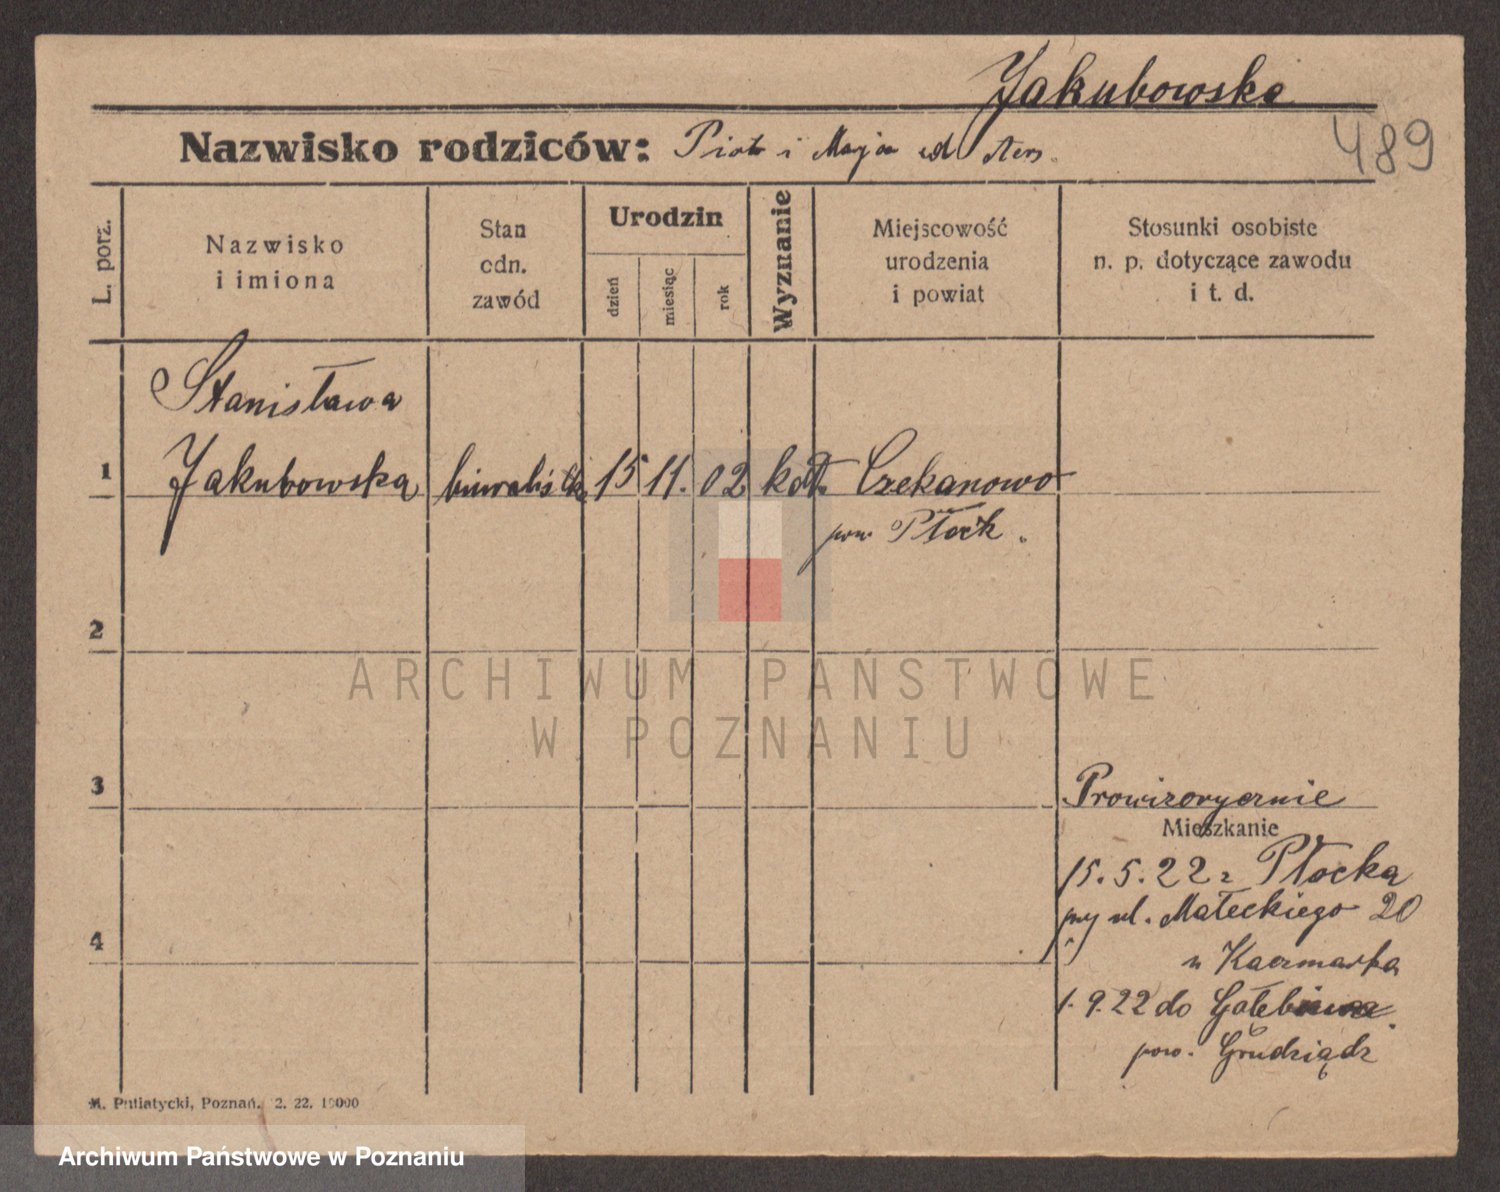 Jakubowska
489
Nazwisko rodziców: Piotr i Marja
L. porz.
Nazwisko
i imiona
Stan
odn.
zawód
Urodzin
dzień
miesiąc
rok
Wyznanie
Miejscowość
urodzenia
i powiat
Stosunki osobiste
n. p. dotyczące zawodu
i t. d.
Stanisława
1 Jakubowska biuralistka 15 11. 02 kat. Czekanowo
pow. Płock.
2
3
Prowizorycznie
Mieszkanie
15.5.22 z Płocka
przy ul. Małeckiego 20
u Kaczmarka
4
1.9.22 do
pow. Grudziądz
M. Putiatycki, Poznań. 2. 22. 10000
ARCHIWUM PAŃSTWOWE
W POZNANIU
Archiwum Państwowe w Poznaniu